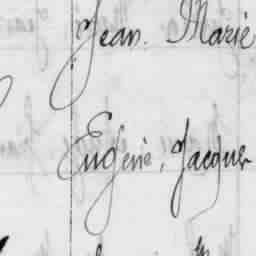 Jean. Marie
Eugène, Jacques